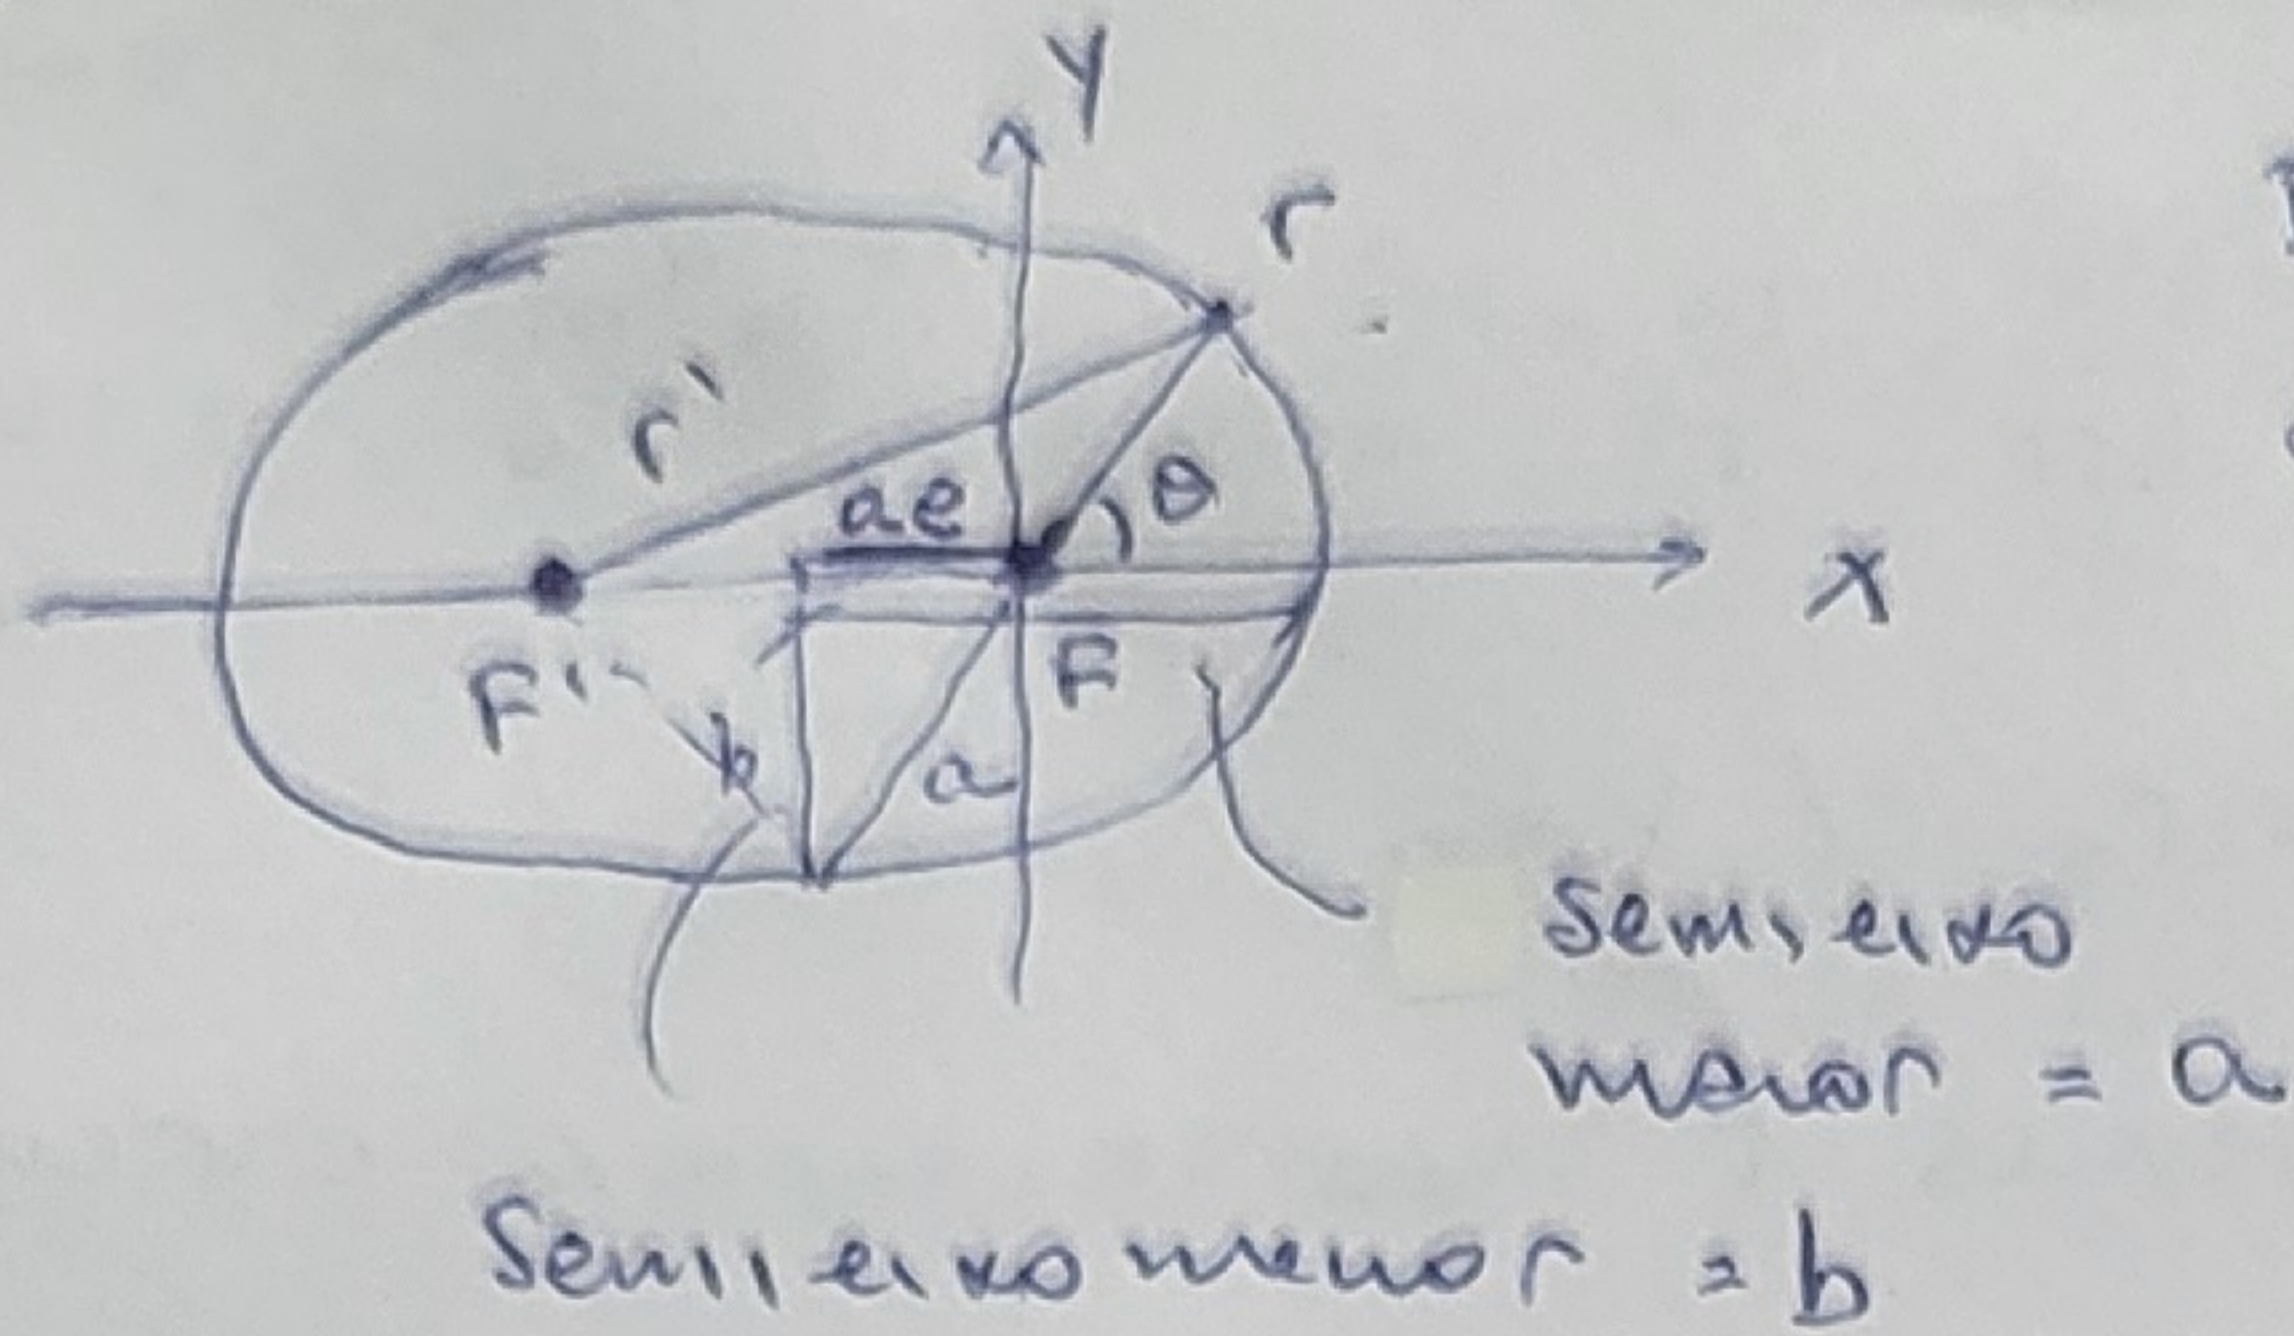 y
r
r'
ae
θ
x
F'
F
b
a
Semieixo
maior = a
Semieixo menor = b